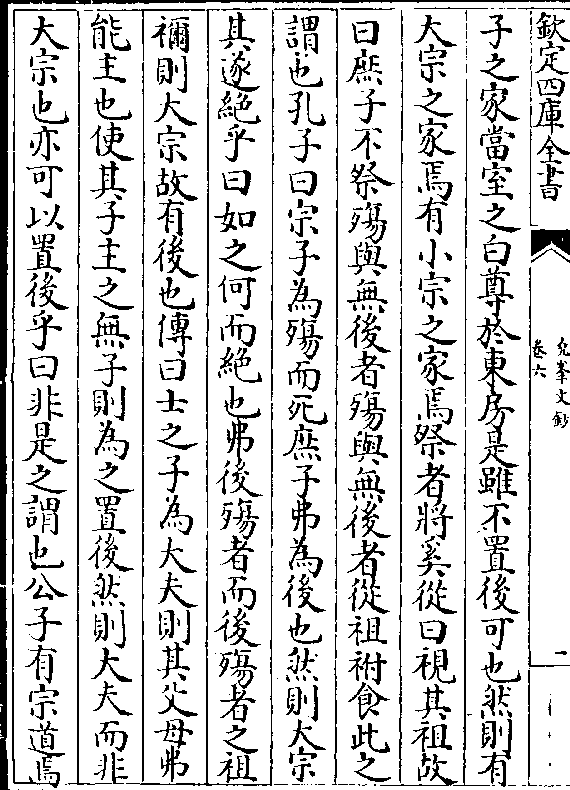 欽定四庫全書
堯峯文鈔
卷六
二
子之家當室之白尊於東房是雖不置後可也然則有
大宗之家焉有小宗之家焉祭者將奚從曰視其祖故
曰庶子不祭殤與無後者殤與無後者從祖祔食此之
謂也孔子曰宗子為殤而死庶子弗為後也然則大宗
其遂絶乎曰如之何而絶也弗後殤者而後殤者之祖
禰則大宗故有後也傳曰士之子為大夫則其父母弗
能主也使其子主之無子則為之置後然則大夫而非
大宗也亦可以置後乎曰非是之謂也公子有宗道焉